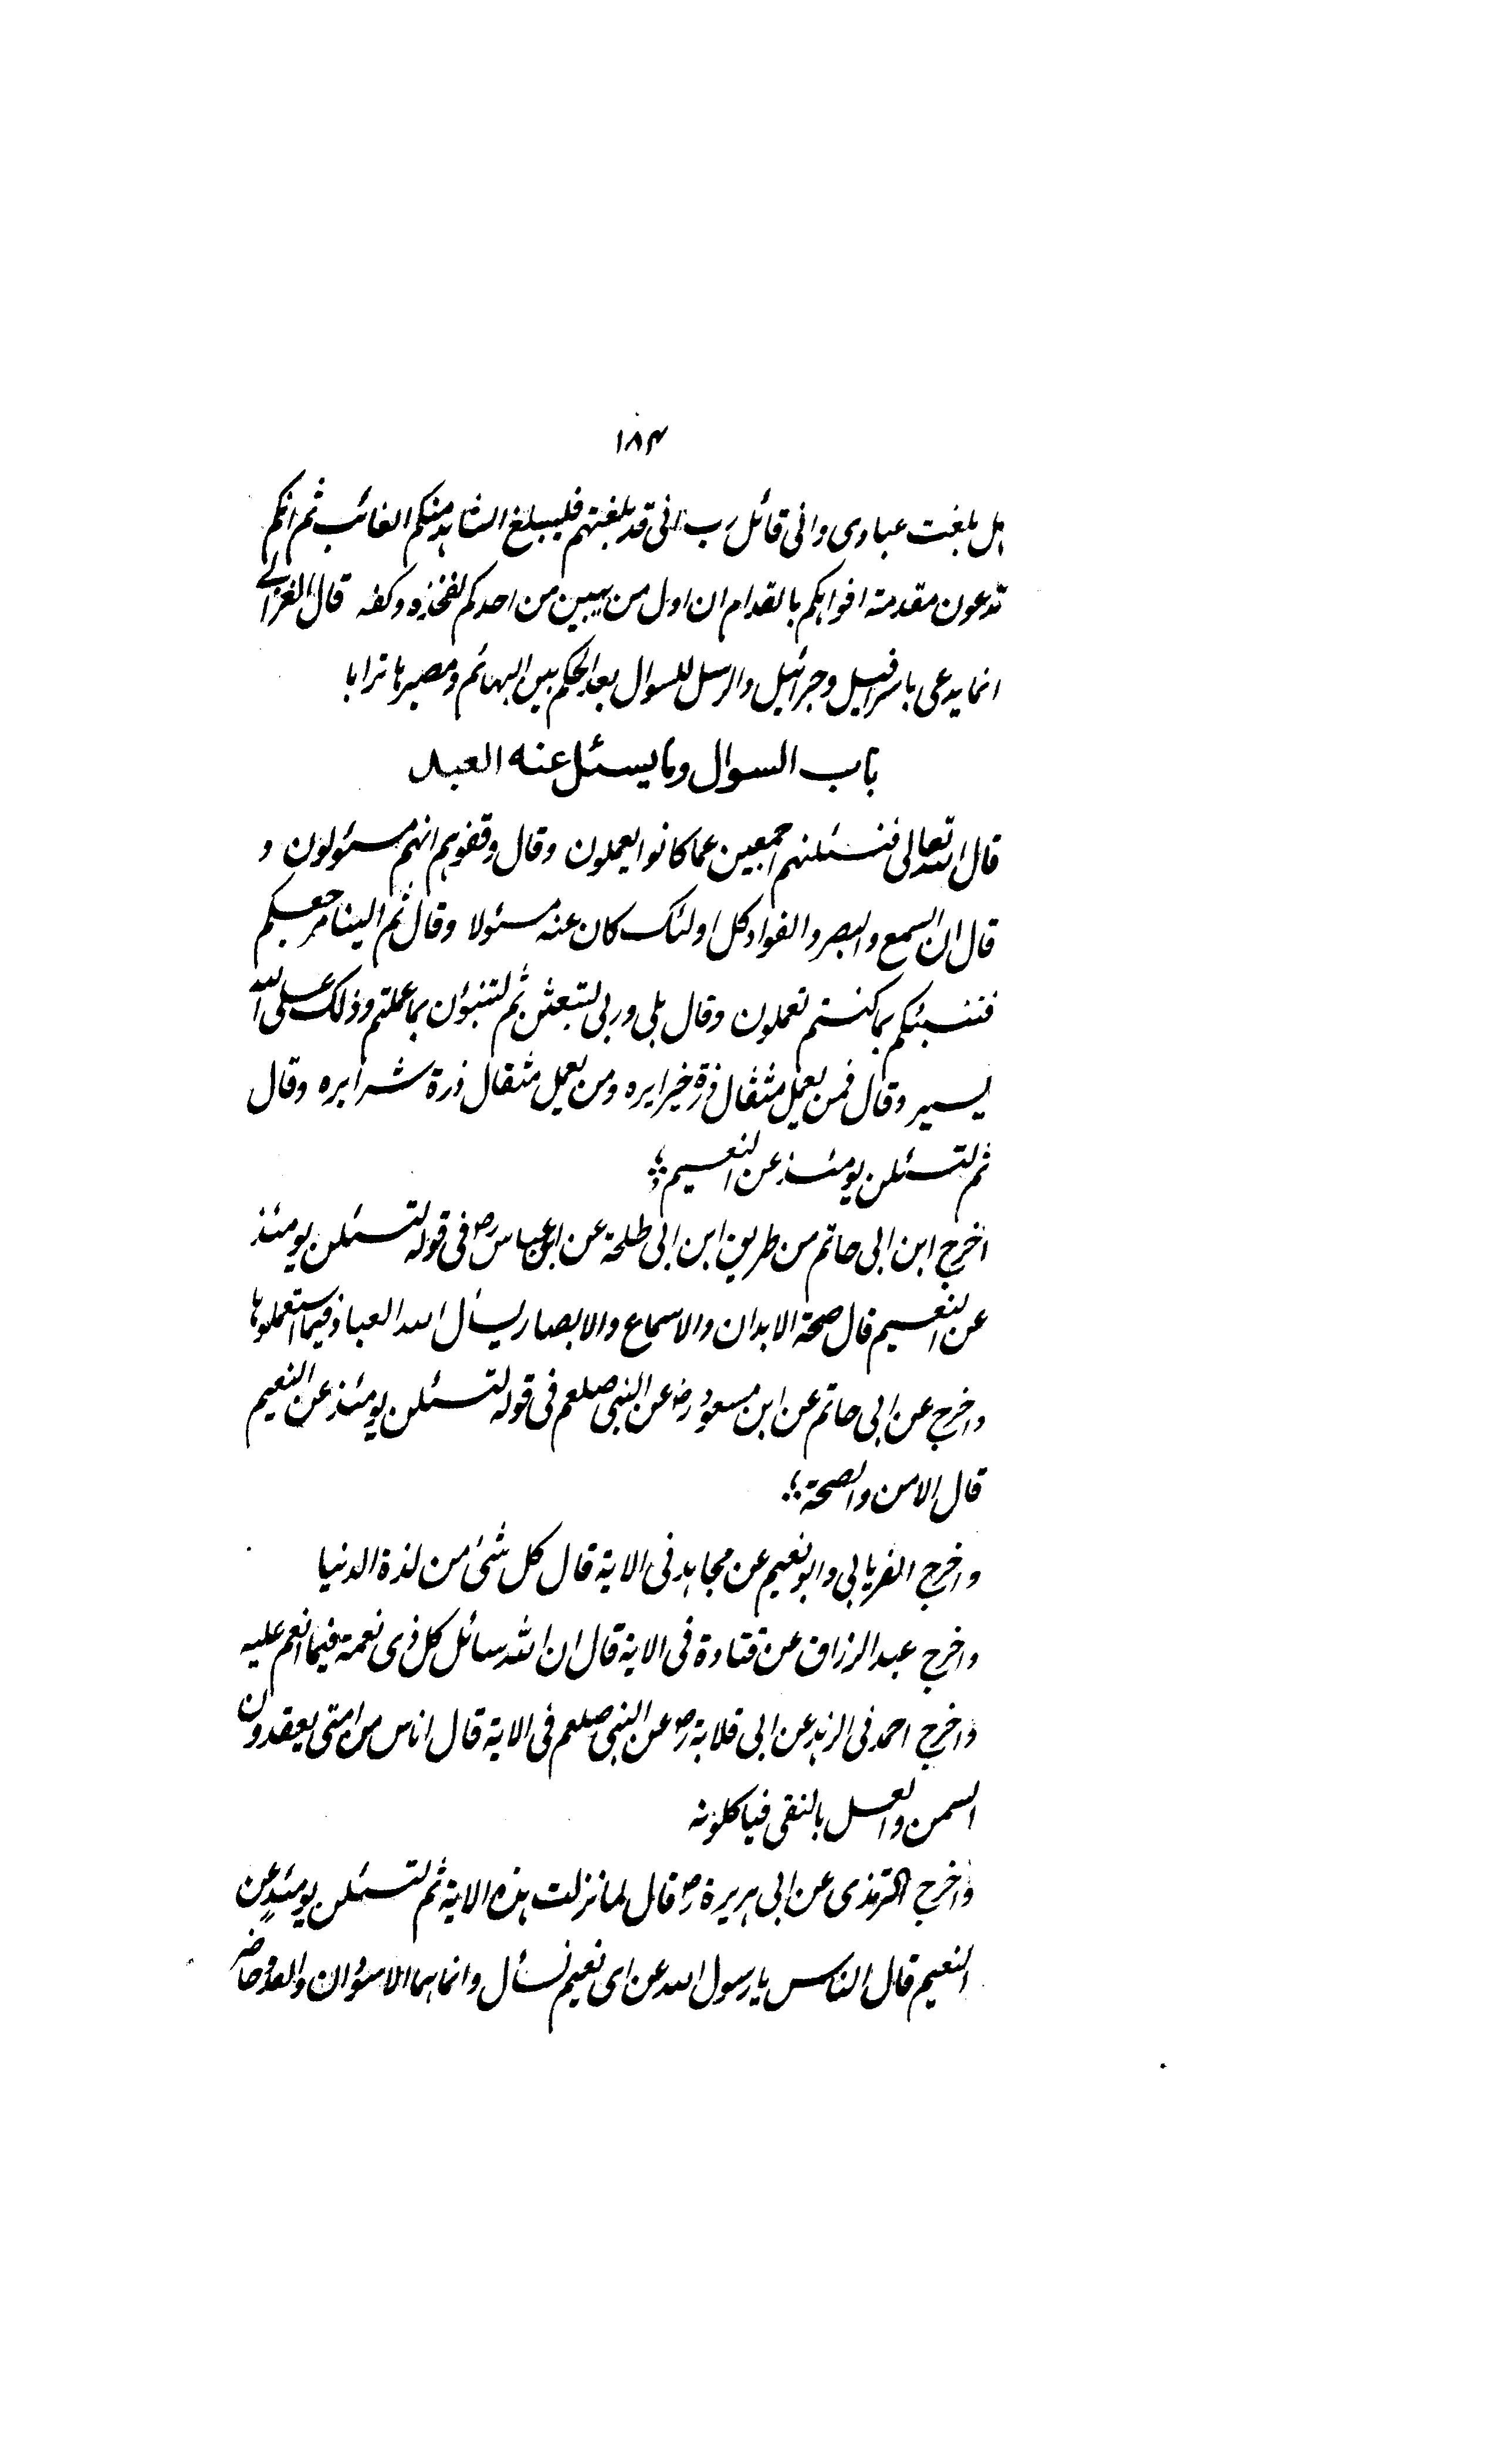 ١٨٣
هل بلغت عبادى وانى قائل رب انى قد بلغتهم فليبلغ الشاهد منكم الغائب ثم انكم
تدعون مقدمة افواهكم بالفدام ان اول من يبين من احدكم لفخذه وكفه قال الغزالے
انما يدعى باسرافيل وجبرائيل والرسل للسوال بعد الحكم بين البهائم ومصيرها ترابا
باب السوال وما يسئل عنه العبد
قال الله تعالى فنسئلنهم اجمعين عما كانوا يعملون وقال وقفوهم انهم مسئولون و
قال ان السمع والبصر والفواد كل اولئك كان عنه مسئولا وقال ثم الينا مرجعكم
فننبئكم بما كنتم تعملون وقال بلى وربى لتبعثن ثم لتنبؤن بما عملتم وذلك على الله
يسير وقال فمن يعمل مثقال ذرة خيرا يره ومن يعمل مثقال ذرة شرا يره وقال
ثم لتسئلن يومئذ عن النعيم
اخرج ابن ابى حاتم من طريق ابن ابى طلحة عن ابن عباس رض فى قوله لتسئلن يومئذ
عن النعيم قال صحة الابدان والاسماع والابصار يسأل الله العباد فيما استعملوها
واخرج عن ابى حاتم عن ابن مسعود رض عن النبى صلعم فى قوله لتسئلن يومئذ عن النعيم
قال الامن والصحة
واخرج الفريابى وابو نعيم عن مجاهد فى الاية قال كل شئ من لذة الدنيا
واخرج عبد الرزاق عن قتادة فى الاية قال ان الله سائل كل ذى نعمة فيما انعم عليه
واخرج احمد فى الزهد عن ابى قلابة رض عن النبى صلعم فى الاية قال اناس من امتى يعقدون
السمن والعسل بالنقى فياكلونه
واخرج الترمذى عن ابى هريرة رض قال لما نزلت هذه الاية ثم لتسئلن يومئذ عن
النعيم قال الناس يا رسول الله عن اى نعيم نسأل وانما هما الاسودان والعدو حاضر